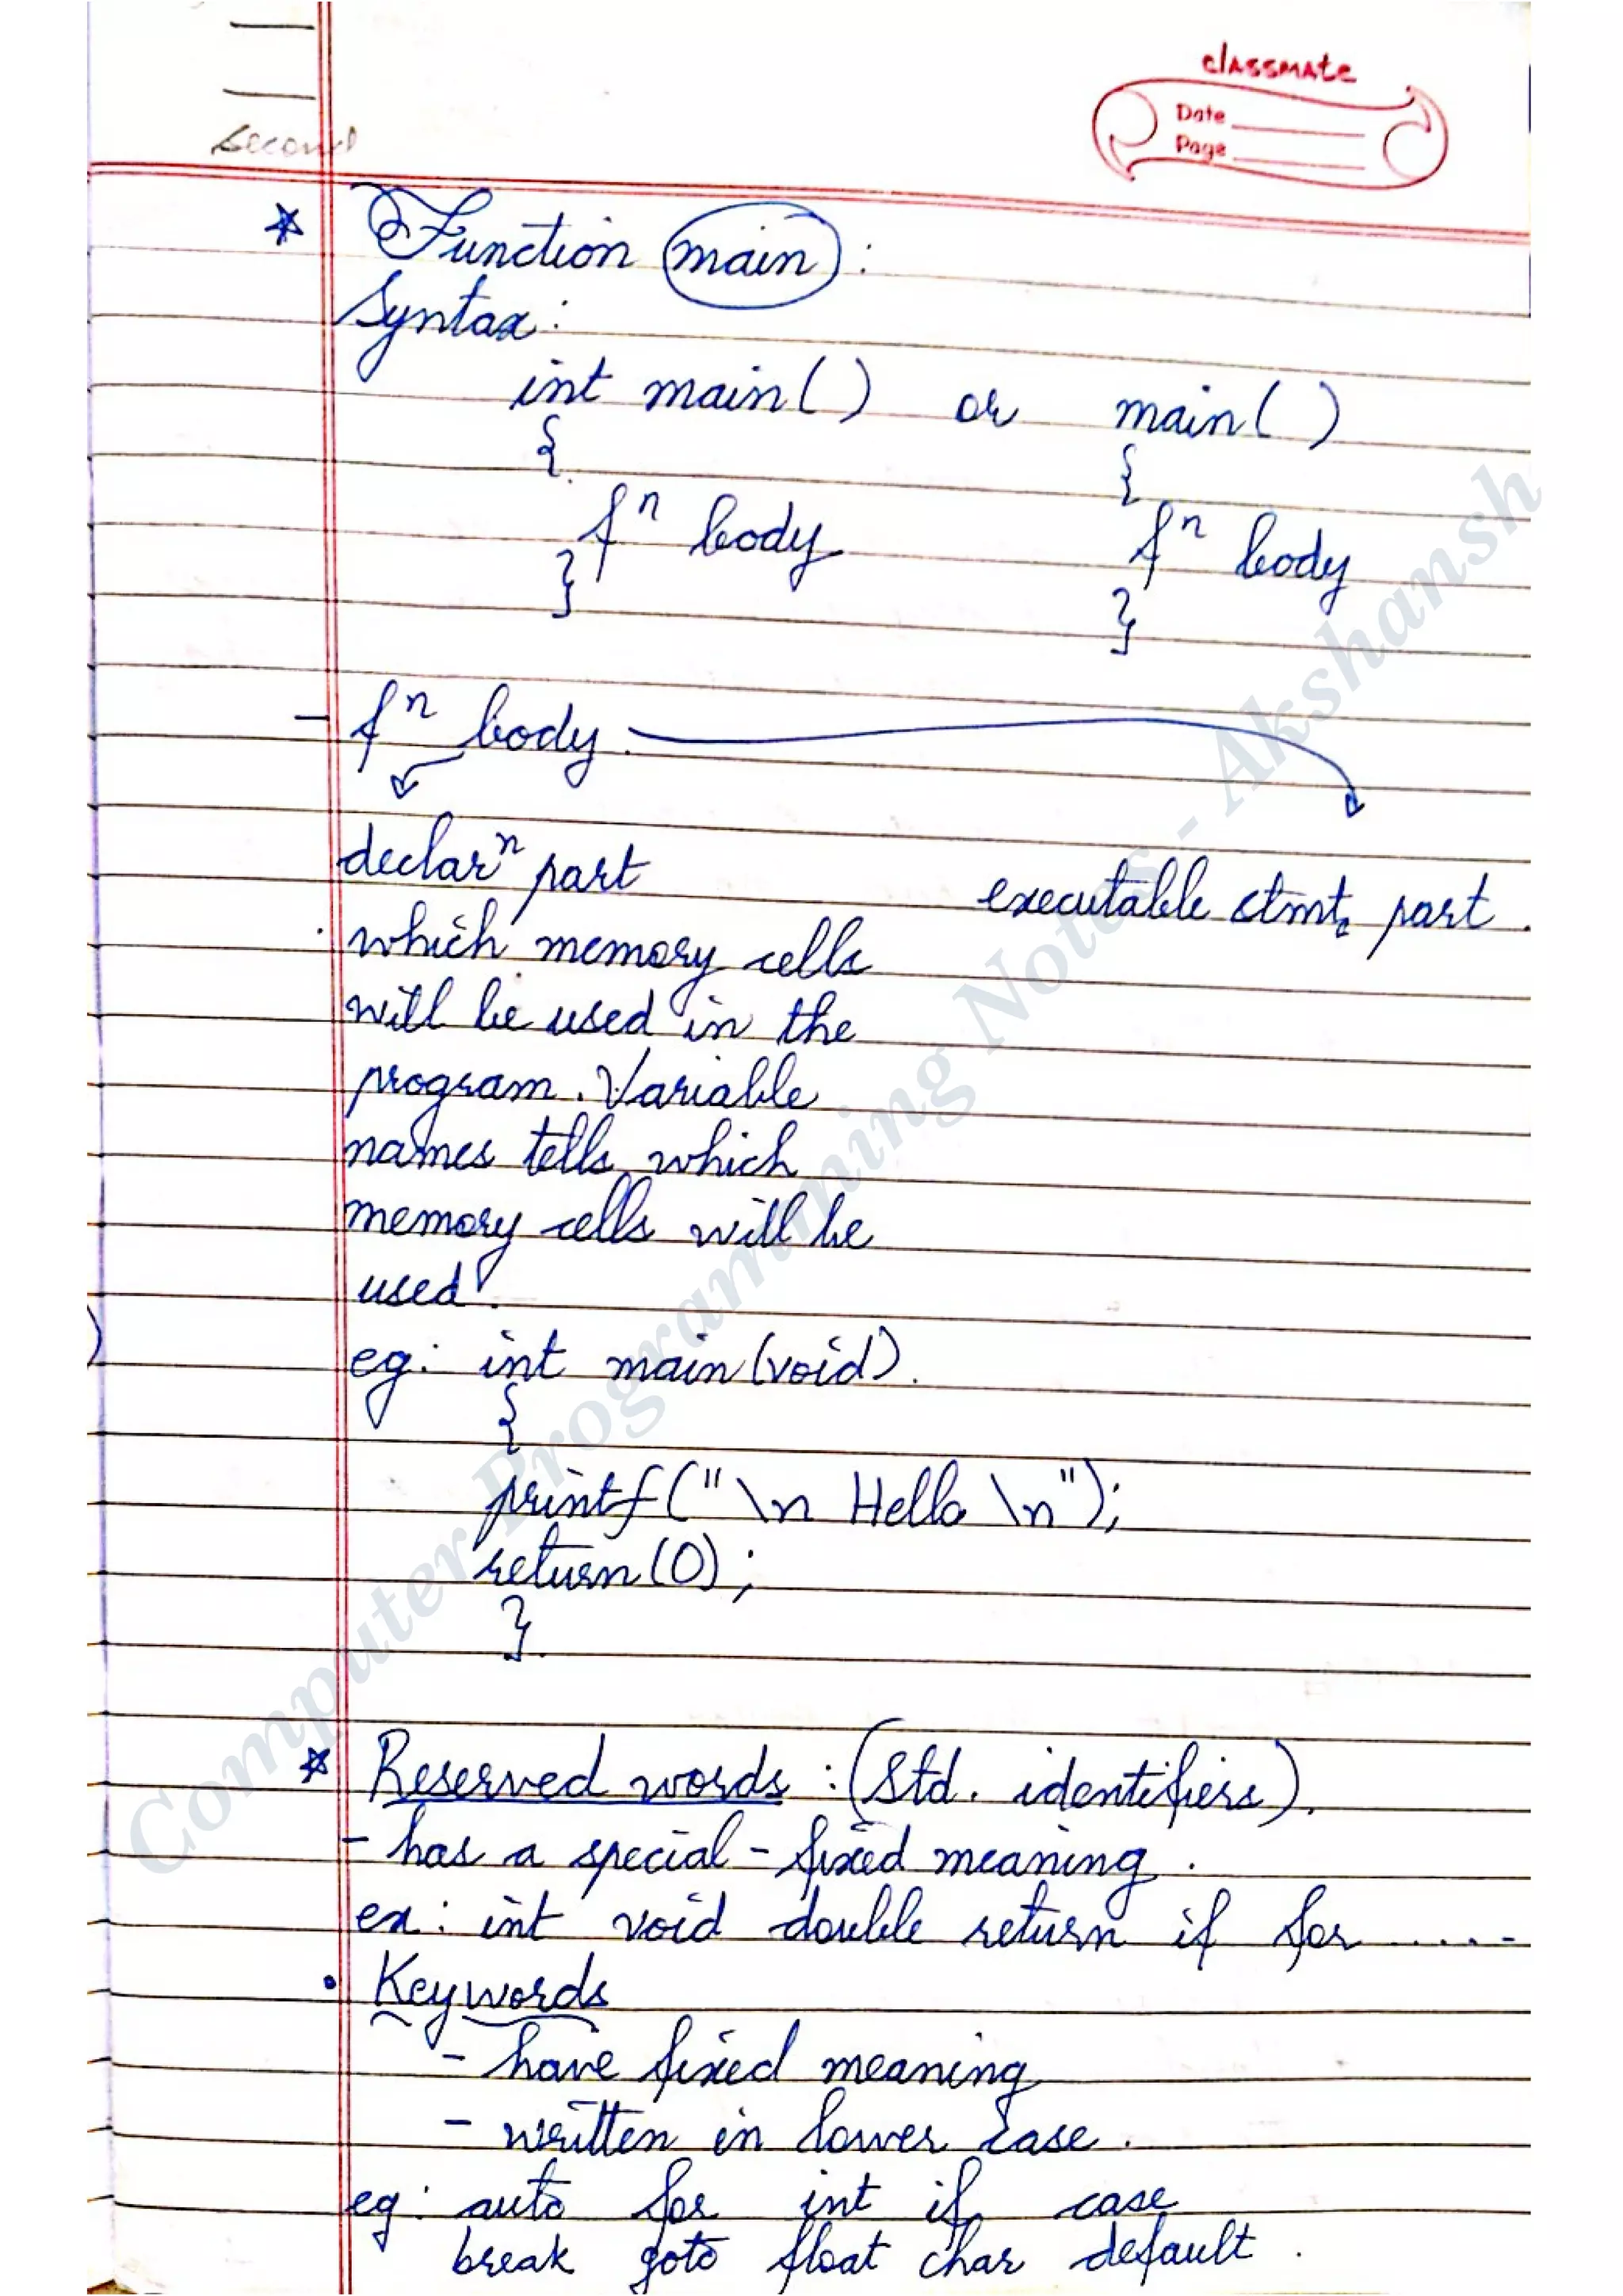 classmate
Date
Page
second
* Function main :
Syntax :
int main( ) or main( )
{ {
fⁿ body fⁿ body
} }
- fⁿ body
declarⁿ part executable stmts part .
which memory cells
will be used in the
program. Variable
names tells which
memory cells will be
used.
eg: int main (void).
{
printf(" \n Hello \n");
return (0) ;
}
* Reserved words : (Std. identifiers).
- has a special - fixed meaning .
ex: int void double return if for .....
• Keywords
- have fixed meaning
- written in lower case .
eg: auto for int if case
break goto float char default .
Computer Programming Notes - Akshansh